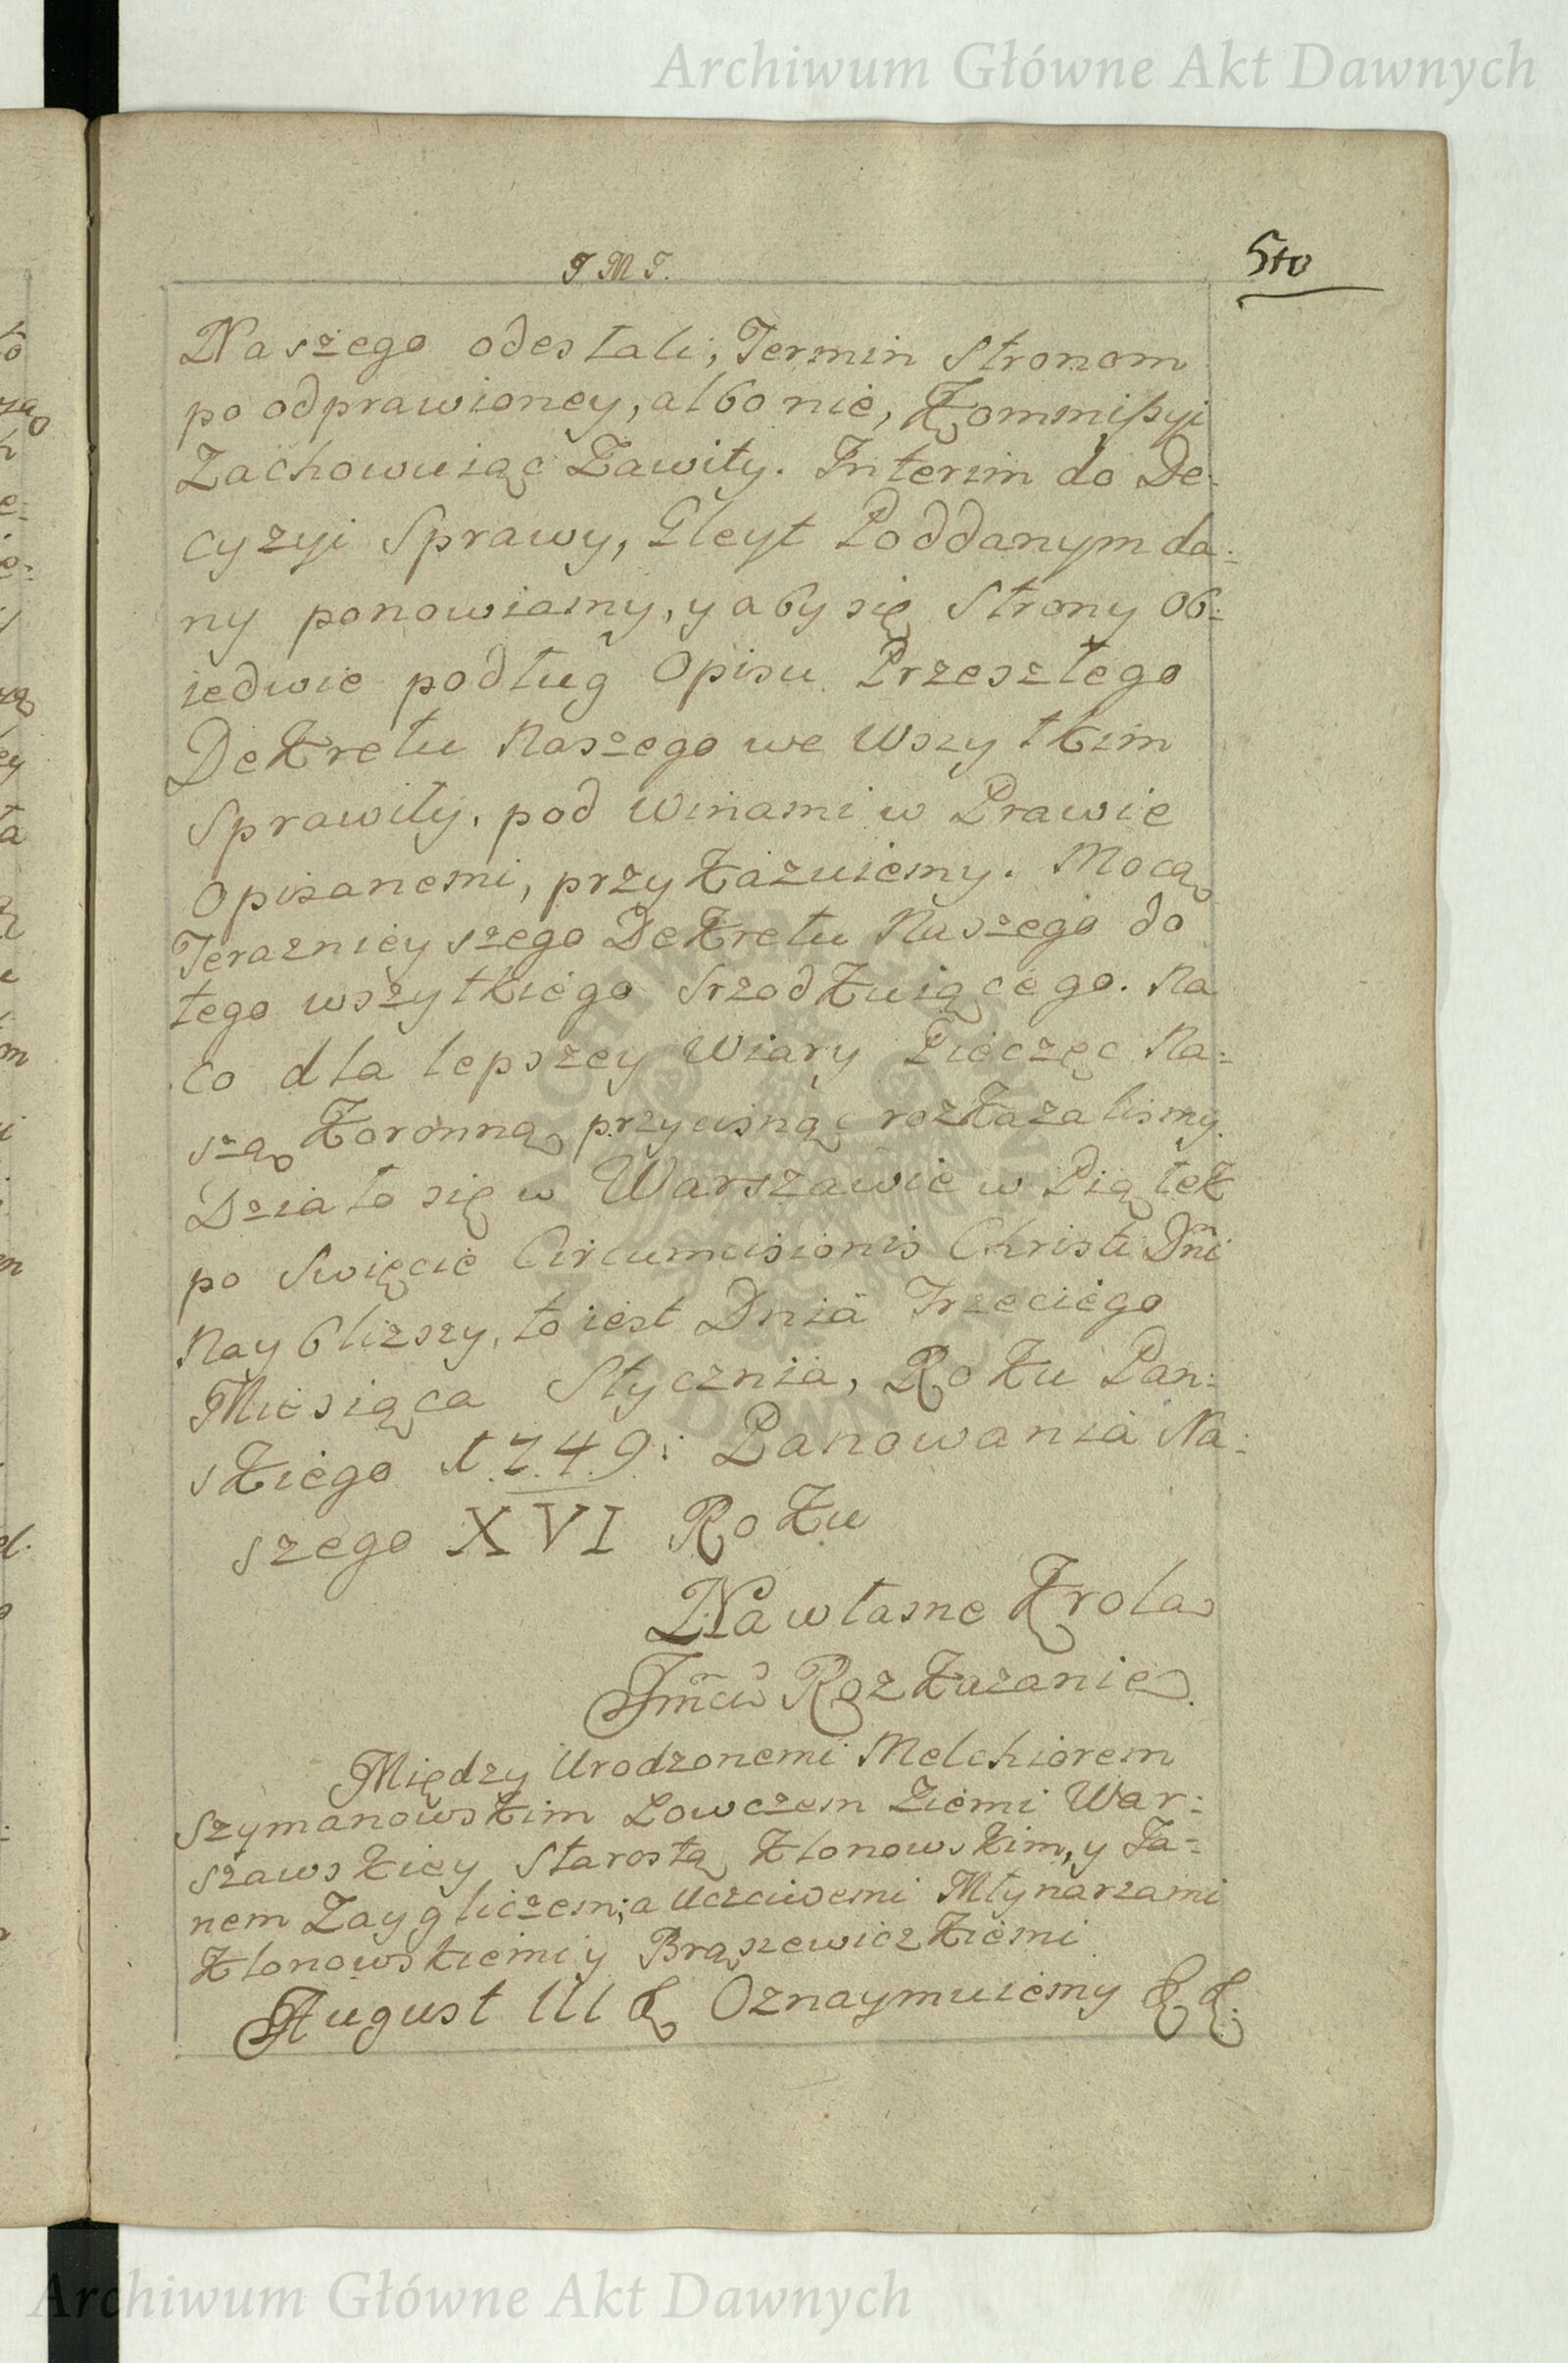 Archiwum Główne Akt Dawnych
J M J.
Naszego odestali, Termin Stronom
po odprawioney, albo nie, Kommissyi
Zachowuiąc Zawity. Interim do De-
cyzyi Sprawy, Gleyt Poddanym da-
ny ponowiamy, y aby się Strony ob-
iedwie podług Opisu Przeszłego
Dekretu Naszego we Wszytkim
Sprawiły, pod Winami w Prawie
Opisanemi, przykazuiemy. Mocą
Teraznieyszego Dekretu Naszego do
tego wszytkiego Srzodkuiącego. Na
co dla lepszey Wiary Pieczęc Na-
szą Koronną przycisnąc rozkazalismy.
Działo się w Warszawie w Piątek
po Swięcie Circumcisionis Christi Dni
Nayblizszy, to iest Dnia Trzeciego
Miesiąca Stycznia, Roku Pan-
skiego 1749: Panowania Na-
szego XVI Roku
Na własne Krola
Jmci Rozkazanie.
Między Urodzonemi Melchiorem
Szymanowskim Lowczem Ziemi War-
szawskiey Starostą Klonowskim, y Ja-
nem Zaygliczem; a Uczciwemi Młynarzami
Klonowskiemi y Brąszewiczkiemi
August III & Oznaymuiemy & &.
Archiwum Główne Akt Dawnych